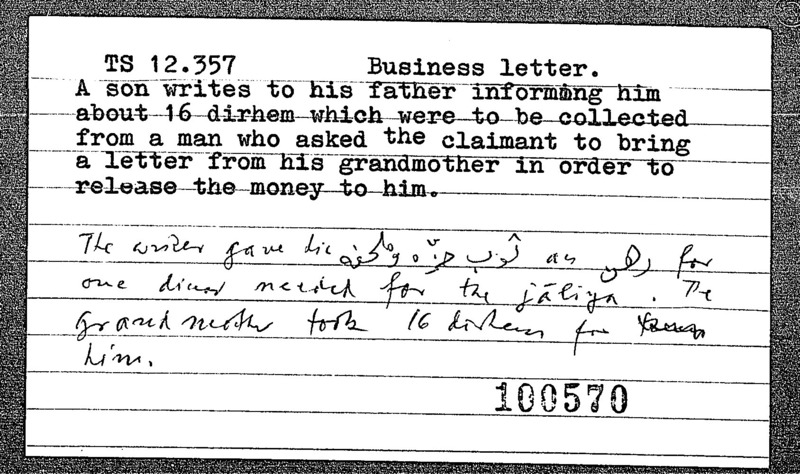 TS 12.357 Business letter.
A son writes to his father informing him
about 16 dirhem which were to be collected
from a man who asked the claimant to bring
a letter from his grandmother in order to
release the money to him.
The writer gave his ثوب as رهن for
one dinar needed for the jāliya. The
grandmother took 16 dirhem for
him.
100570